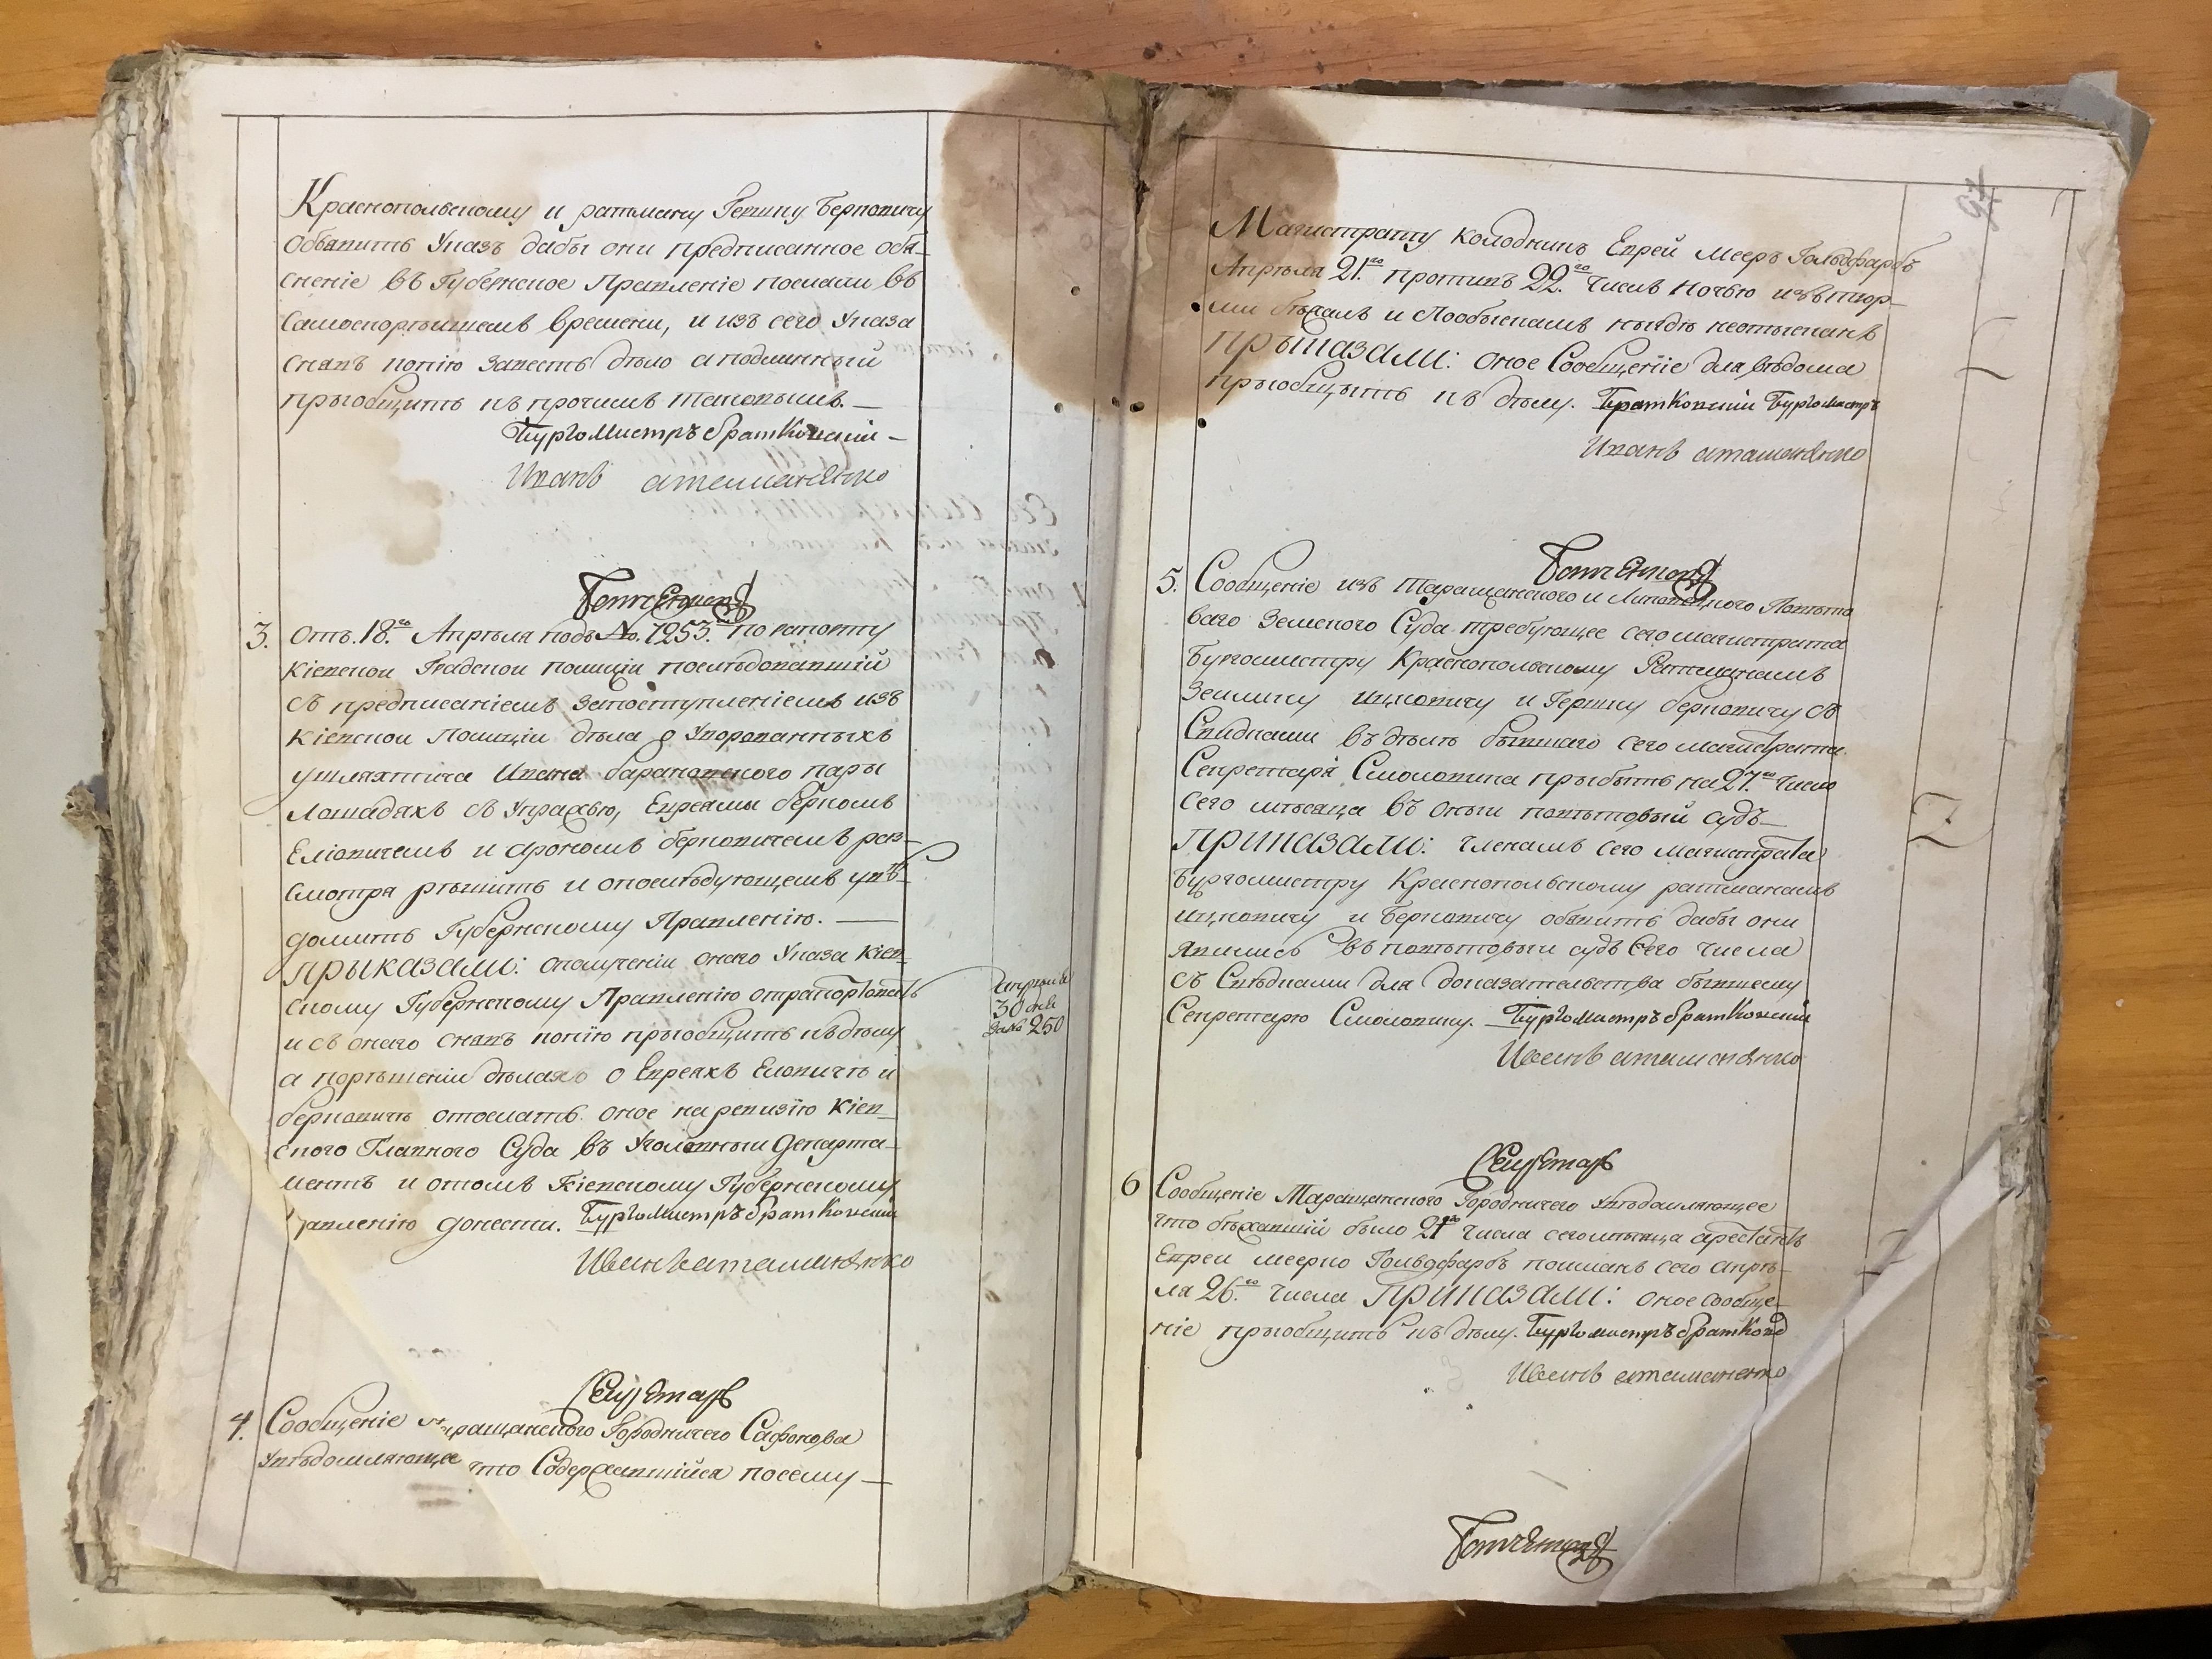 Краснопольскому и ратману Гершу Берковичу
Объявить Указъ дабы они предписанное объя-
снение въ Губернское Правленіе послали въ
Самоскорѣйшемъ времени, и изъ сего Указа
снявъ копію завесть дѣло а подлинный
прыобщить къ прочимъ таковымъ.—
Бургомистръ Братковскій—
Иванъ атаманенко
3. Отъ 18го Апрѣля подъ №. 7253.мъ по рапорту
Кіевской Градской полиціи послѣдовавшій
съ предписаніемъ запоступленіемъ изъ
Кіевской Полиціи дѣла о Укорованныхъ
ушляхтича Ивана барановского пары
Лошадяхъ съ Упражью, Евреями беркомъ
Еліовичемъ и арономъ берковичемъ раз-
смотря рѣшить и опослѣдующемъ увѣ-
домить Губернскому Правленію.—
прыказали: ополученіи онаго Указа Кіев-
скому Губернскому Правленію отрапортовать
и съ онаго снявъ копію прыобщить къ дѣлу
а порѣшеніи дѣлахъ о Евреяхъ Еловичѣ и
берковичѣ отослать оное на ревизію Кіев-
ского Главного Суда въ Уголовный Департа-
ментъ и отомъ Кіевскому Губернскому
равленію донести. Бургомистръ Братковскій
Иванъ атаманенко
апрыля
30 дня
за № 250
Секретарь
4. Сообщеніе ращанского Городничего Сафонова
Увѣдомляюще что Содержавшійся посему—
Магистрату колодникъ Еврей Мееръ Гольдфарбъ
Апрѣля 21.го противъ 22.го числъ ночью изътюр-
ми бѣжалъ и Пообыскамъ нигдѣ неотысканъ
прыказали: оное Сообщеніе для вѣдома
прыобщыть къ дѣлу. Братковскій Бургомистръ
Иванъ атаманенко
5. Сообщеніе изъ Таращанского и Липовецкого Повѣто
вого Земского Суда требующее сего магистрата
Бургомистру Краснопольскому Ратманамъ
Зеилику ицковичу и Гершку берковичу съ
Свидками въ дѣлѣ бывшаго сего магистрата
Секретара Смоловика прыбыть на 27.е число
сего мѣсяца въ оный повѣтовый судъ—
Приказали: членамъ сего магистрата
Бургомистру Краснопольскому ратманамъ
ицковичу и Берковичу объявить дабы они
явились въ повѣтовый судъ Сего числа
съ Свѣдками для доказательства бывшему
Секретарю Смоловику. Бургомистръ Братковскій
Иванъ атаманенко
Секретарь
6 Сообщеніе Таращанского Городничего Увѣдомляющее
что бѣжавшій было 21го числа сего мѣсяца арестантъ
Еврей меерко Гольдфарбъ пойманъ сего апрѣ-
ля 26.го числа Приказали: оное сообще-
ніе прыобщить къ дѣлу. Бургомистръ Братковс
Иванъ атаманенко